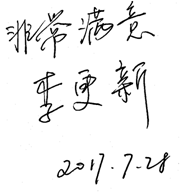 非常满意
李更新
2017.7.28